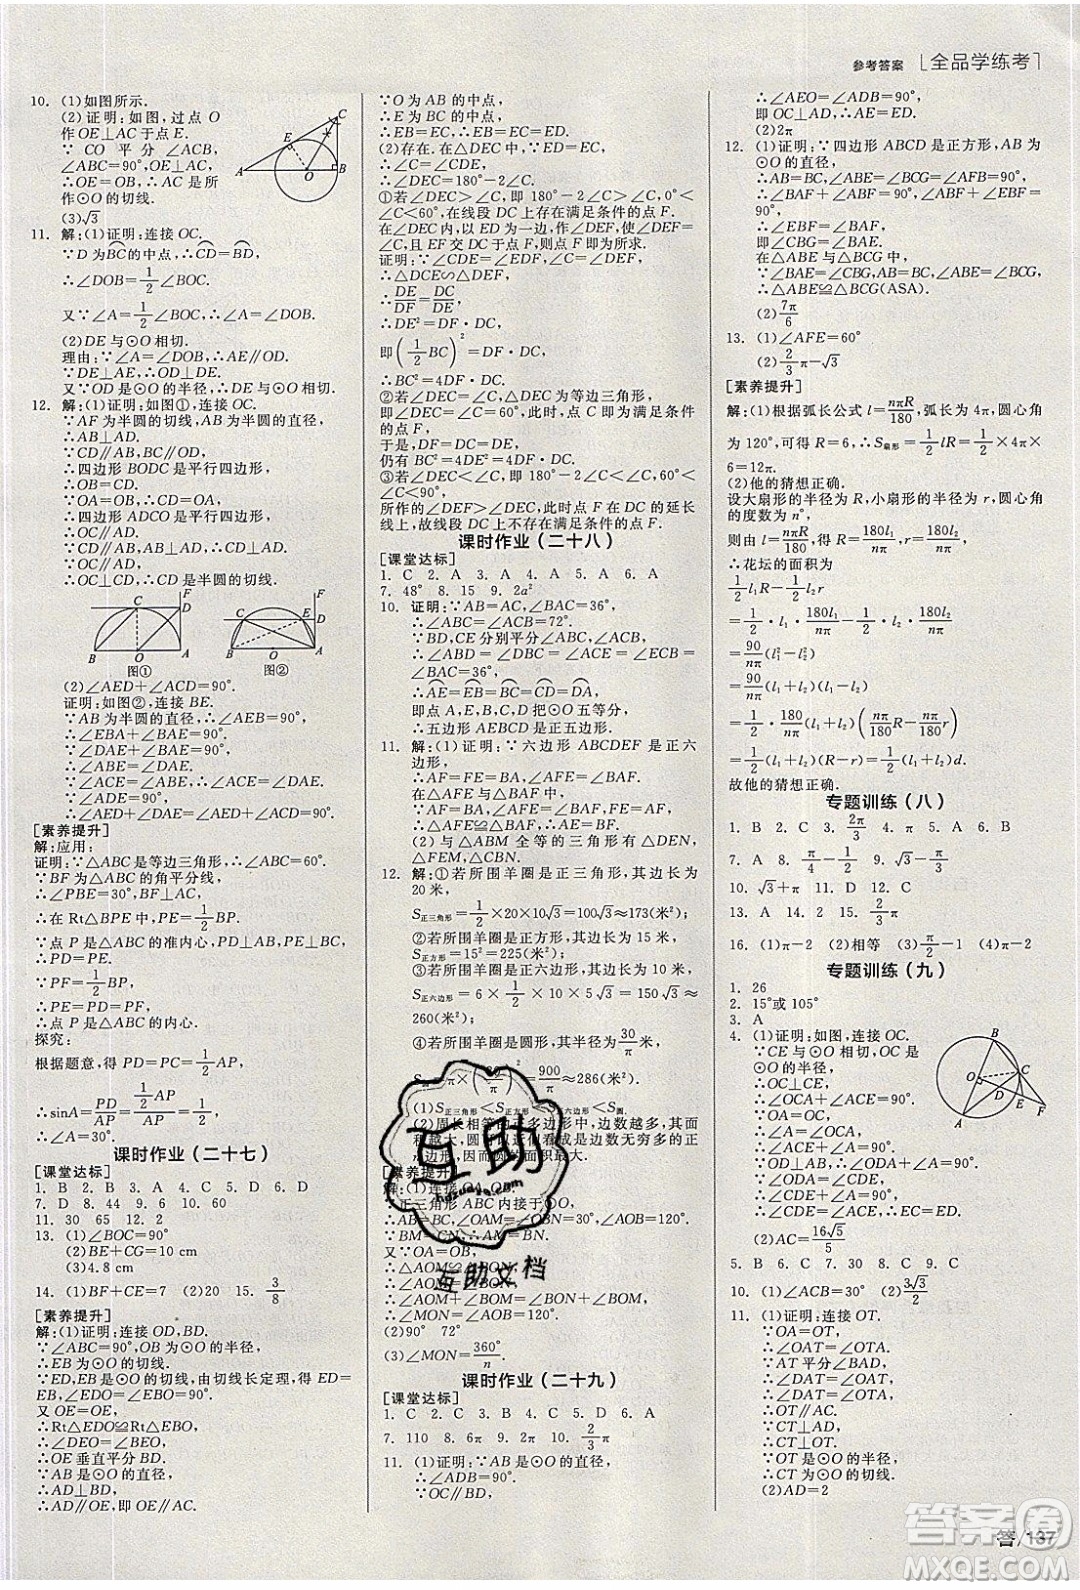 参考答案 [全品学练考]
10. (1)如图所示.
(2)证明:如图,过点 O
作OE⊥AC 于点 E.
∵ CO 平分∠ACB,
∠ABC=90°,OE⊥AC,
∴OE=OB,∴AC 是所
作⊙O 的切线.
(3)√3
11. 解:(1)证明:连接 OC.
∵D为BC的中点,∴CD=BD,
∴∠DOB=1/2∠BOC.
又∵∠A=1/2∠BOC,∴∠A=∠DOB.
(2)DE 与⊙O 相切.
理由:∵∠A=∠DOB,∴AE∥OD.
∵DE⊥AE,∴OD⊥DE.
又∵OD是⊙O 的半径,∴DE与⊙O 相切.
12. 解:(1)证明:如图①,连接 OC.
∵AF为半圆的切线,AB为半圆的直径,
∴AB⊥AD.
∵CD∥AB,BC∥OD,
∴四边形 BODC 是平行四边形,
∴OB=CD.
∵OA=OB,∴CD=OA,
∴四边形 ADCO 是平行四边形,
∴OC∥AD.
∵CD∥AB,AB⊥AD,∴CD⊥AD.
∵OC∥AD,∴OC⊥CD,
∴OC是半圆的切线.
图① 图②
(2)∠AED+∠ACD=90°.
证明:如图②,连接 BE.
∵AB为半圆的直径,∴∠AEB=90°,
∴∠EBA+∠BAE=90°.
∵∠DAE+∠BAE=90°,
∴∠ABE=∠DAE.
∵∠ACE=∠ABE,∴∠ACE=∠DAE.
∵∠ADE=90°,
∴∠AED+∠DAE=∠AED+∠ACD=90°
[素养提升]
解:应用:
证明:∵△ABC是等边三角形,∴∠ABC=60°.
∵BF 为△ABC的角平分线,
∴∠PBE=30°,BF⊥AC.
在 Rt△BPE 中,PE=1/2BP.
∵点 P 是△ABC的准内心,PD⊥AB,PE⊥BC,
∴PD=PE.
∵PF=1/2BP,
∴PE=PD=PF,
∴点 P 是△ABC的内心.
探究:
根据题意,得 PD=PC=1/2AP,
∴sinA=PD/AP=1/2AP/AP=1/2,
∴∠A=30°.
课时作业(二十七)
[课堂达标]
1. B 2. B 3. A 4. C 5. D 6. D
7. D 8. 105° 9. 10 10. 60
11. 30 65 12. 2
13. (1)∠BOC=90°
(2)BE+CG=10 cm
(3)4.8 cm
14. (1)BF+CE=7 (2)20 15. 3/8
[素养提升]
解:(1)证明:连接 OD,BD.
∵∠ABC=90°,OB为⊙O 的半径,
∴EB为⊙O 的切线.
∵ED,EB是⊙O 的切线,由切线长定理,得ED=EB.
又 OE=OE,OD=OB,
∴Rt△EDO≌Rt△EBO,
∴∠DEO=∠BEO,
∴OE 垂直平分 BD.
∵AB 是⊙O 的直径,
∴AD⊥BD.
∴AD∥OE,即 OE∥AC.
∵O为 AB 的中点,
∴E 为 BC 的中点,
∴EB=EC,∴ED=EC.
(2)存在.在△DEC 中,∵ED=EC,
∴∠C=∠CDE,
∴∠DEC=180°-2∠C.
①若∠DEC>∠C,即 180°-2∠C>∠C,0°
<∠C<60°,在线段 DC 上存在满足条件的点 F.
在DEC内,以 ED 为一边,作∠DEF=∠C,
且 EF 交 DC 于点 F,则点 F 即为所求.
证明:∵∠C=∠DEF,∠CDE=∠EDF,
∴△DCE∽△DEF,
∴DE/DF=DC/DE,
∴DE²=DF·DC,
即(1/2BC)²=DF·DC,
∴BC²=4DF·DC.
②若∠DEC=∠C,∴△DEC为等边三角形,
即∠DEC=∠C=60°,此时,点 C 即为满足条件
的点 F,
于是,DF=DC=DE,
仍有 BC²=4DE²=4DF·DC.
③若∠DEC<∠C,即 180°-2∠C<∠C,60°<∠C<90°,
所作的∠DEF>∠DEC,此时点 F 在DC的延长
线上,故线段DC上不存在满足条件的点 F.
课时作业(二十八)
[课堂达标]
1. C 2. A 3. A 4. A 5. A 6. A
7. 48° 8. 15 9. 2a²
10. 证明:∵AB=AC,∠BAC=36°,
∴∠ABC=∠ACB=72°.
∵BD,CE 分别平分∠ABC,∠ACB,
∴∠ABD=∠CBD=∠ACE=∠ECB=
∠BAC=36°,
∴AE=EB=BC=CD=DA,
即点 A,E,B,C,D 把⊙O 五等分,
∴五边形 AEBCD 是正五边形.
11. 解:(1)证明:∵六边形 ABCDEF 是正六
边形,
∴AF=FE=BA,∠AFE=∠BAF.
在△AFE 与△BAF 中,
∵AF=BA,∠AFE=∠BAF,FE=AF,
∴△AFE≌△BAF(SAS),
∴AE=FB.
(2)与△ABM 全等的三角形有△DEN,
△FEM,△CBN.
12. 解:①若所围羊圈是正三角形,其边长为
20 米,
S正三角形=1/2×20×10√3=100√3≈173(米²);
②若所围羊圈是正方形,其边长为 15 米,
S正方形=15²=225(米²);
③若所围羊圈是正六边形,其边长为 10 米,
S正六边形=6×1/2×10×5√3=150√3≈
260(米²);
④若所围羊圈是圆形,其半径为30/π米,
≈286(米²).
(1)S正三角形<S正方形<S正六边形<S圆.
(2)周长相等的正多边形中,边数越多,其面
积越大,圆可以近似看成是边数无穷多的正
多边形,因而圆的面积最大.
[素养提升]
解:(1)连接 OA,OB.
∵正三角形 ABC 内接于⊙O,
∴AB=BC,∠OAM=∠OBN=30°,∠AOB=120°.
∵BM=CN,∴AM=BN.
又∵OA=OB,
∴∠AOM=∠BON,
(2)90° 72°
(3)∠MON=360°/n.
课时作业(二十九)
[课堂达标]
1. C 2. C 3. C 4. B 5. D 6. A
7. 110 8. 6π 9. 2π 10. 2/3π
11. (1)证明:∵AB是⊙O的直径,
∴∠ADB=90°.
∵OC∥BD,
∴∠AEO=∠ADB=90°,
即 OC⊥AD,∴AE=ED.
(2)2π
12. (1)证明:∵四边形 ABCD 是正方形,AB 为
⊙O 的直径,
∴∠ABC=∠BCG=∠AFB=90°,
∴∠BAF+∠ABF=90°,∠ABF+∠EBF=
90°,
∴∠EBF=∠BAF.
在△ABE与△BCG 中,
∵∠BAE=∠CBG,AB=BC,∠ABE=∠BCG,
∴△ABE≌△BCG(ASA).
(2)7π/6
13. (1)∠AFE=60°
(2)2/3π-√3
[素养提升]
解:(1)根据弧长公式 l=nπR/180,弧长为 4π,圆心角
为 120°,可得 R=6,∴S扇形=1/2lR=1/2×4π×
6=12π.
(2)他的猜想正确.
设大扇形的半径为 R,小扇形的半径为 r,圆心角
的度数为 n°,
则由 l=nπR/180,得 R=180l₁/nπ,r=180l₂/nπ,
∴花坛的面积为
1/2l₁R-1/2l₂r
=1/2·l₁·180l₁/nπ-1/2·l₂·180l₂/nπ
=90/nπ(l₁²-l₂²)
=90/nπ(l₁+l₂)(l₁-l₂)
=1/2·180/nπ(l₁+l₂)(nπ/180R-nπ/180r)
=1/2(l₁+l₂)(R-r)=1/2(l₁+l₂)d.
故他的猜想正确.
专题训练(八)
1. B 2. C 3. 2π/3 4. π 5. A 6. B
7. A 8. π/4-1/2 9. √3-π/2
10. √3+π 11. D 12. C
13. A 14. 2 15. 2/3π
16. (1)π-2 (2)相等 (3)π/2-1 (4)π-2
专题训练(九)
1. 26
2. 15°或 105°
3. A
4. (1)证明:如图,连接 OC.
∵CE 与⊙O 相切,OC 是
⊙O 的半径,
∴OC⊥CE,
∴∠OCA+∠ACE=90°.
∵OA=OC,
∴∠A=∠OCA,
∴∠ACE+∠A=90°.
∵OD⊥AB,∴∠ODA+∠A=90°.
∵∠ODA=∠CDE,
∴∠CDE+∠A=90°,
∴∠CDE=∠ACE,
∴EC=ED,
∴△CDE为等腰三角形.
(2)AC=16√5/5
5. B 6. C 7. 30 8. C 9. 6
10. (1)∠ACB=30° (2)3√3/2
11. (1)证明:连接 OT.
∵OA=OT,
∴∠OAT=∠OTA.
∵AT 平分∠BAD,
∴∠DAT=∠OAT,
∴∠DAT=∠OTA,
∴OT∥AC.
∵CT⊥AC,∴CT⊥OT.
∵OT 是⊙O 的半径,
∴CT 为⊙O 的切线.
(2)AD=2
互助
hdzuoye.com
互助文档
答案圈
MXQE.COM
答/137